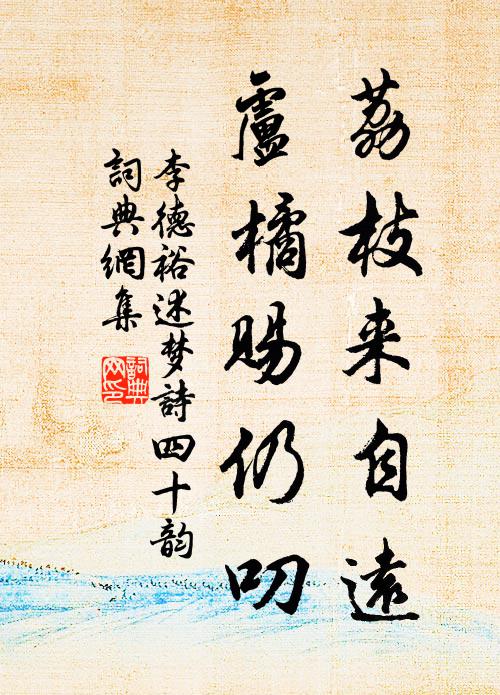 荔枝来自遠
盧橘賜仍叨
李德裕述梦詩四十韵
詞典網集
詞典
网印